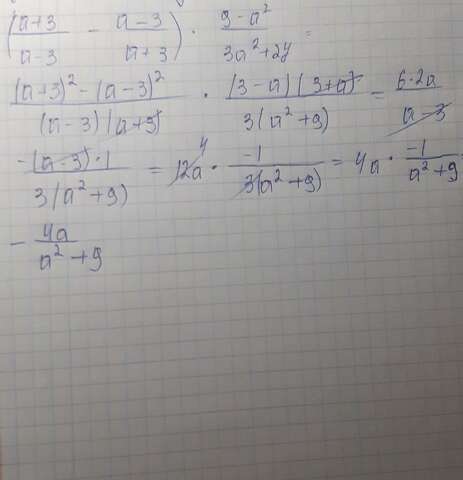 ((a+3)/(a-3) - (a-3)/(a+3)) · (9-a²)/(3a²+27) =
((a+3)²-(a-3)²)/((a-3)(a+3)) · ((3-a)(3+a))/(3(a²+9)) = (6·2a)/(a-3)
(-(a-3)·1)/(3(a²+9)) = 12a · (-1)/(3(a²+9)) = 4a · (-1)/(a²+9)
- (4a)/(a²+9)